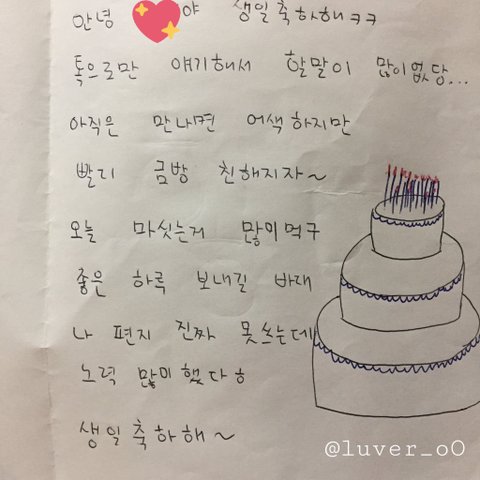 안녕 야 생일축하해ㅋㅋ
톡으로만 얘기해서 할말이 많이없당...
아직은 만나면 어색하지만
빨리 금방 친해지자~
오늘 마싯는거 많이먹구
좋은 하루 보내길 바래
나 편지 진짜 못쓰는데
노력 많이했다ㅎ
생일축하해~
@luver_o0